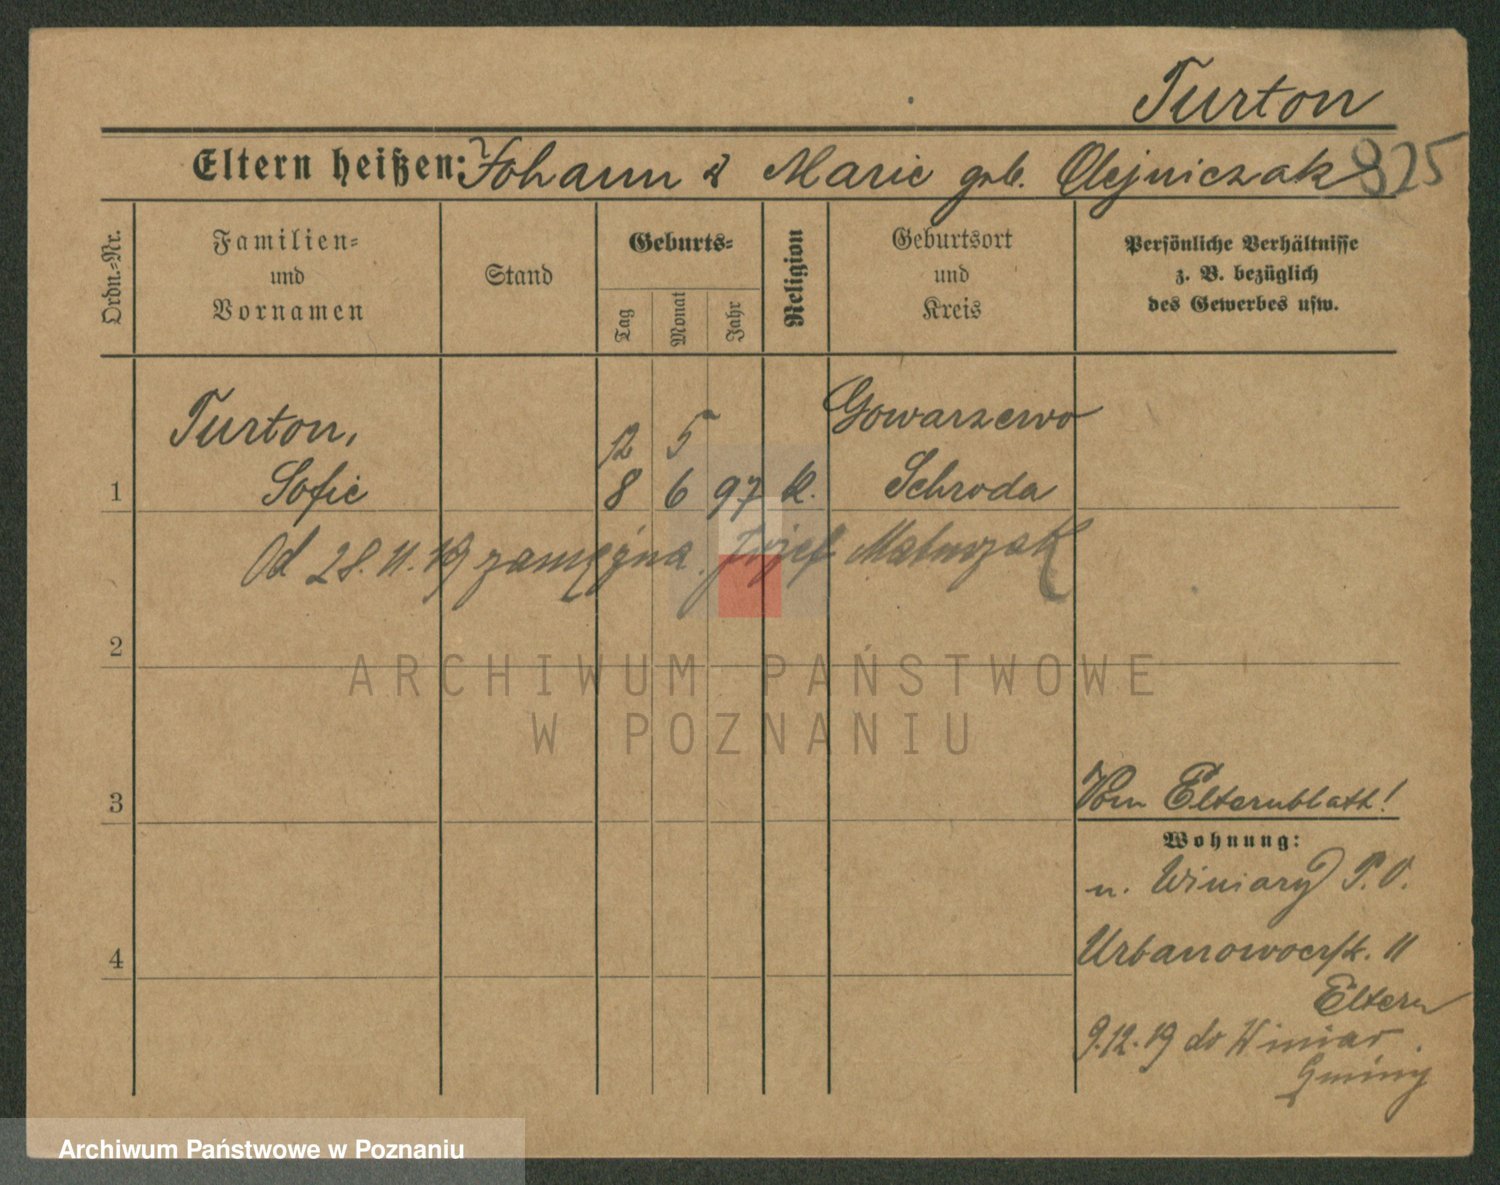 Turton
Eltern heißen: Johann & Marie geb. Olejniczak 825
Ordn.=Nr.
Familien=
und
Vornamen
Stand
Geburts=
Tag
Monat
Jahr
Religion
Geburtsort
und
Kreis
Persönliche Verhältnisse
z. B. bezüglich
des Gewerbes usw.
Turton, 12 5 Gowarzewo
1 Sofie 8 6 97 k. Schroda
Od 28.11.19 zamężna Józef
2
3
4
Vom Elternblatt!
Wohnung:
n. Winiary P. O.
Urbanowoerstr. 11
Eltern
9.12.19 do Winiar
Gminy
ARCHIWUM PAŃSTWOWE
W POZNANIU
Archiwum Państwowe w Poznaniu